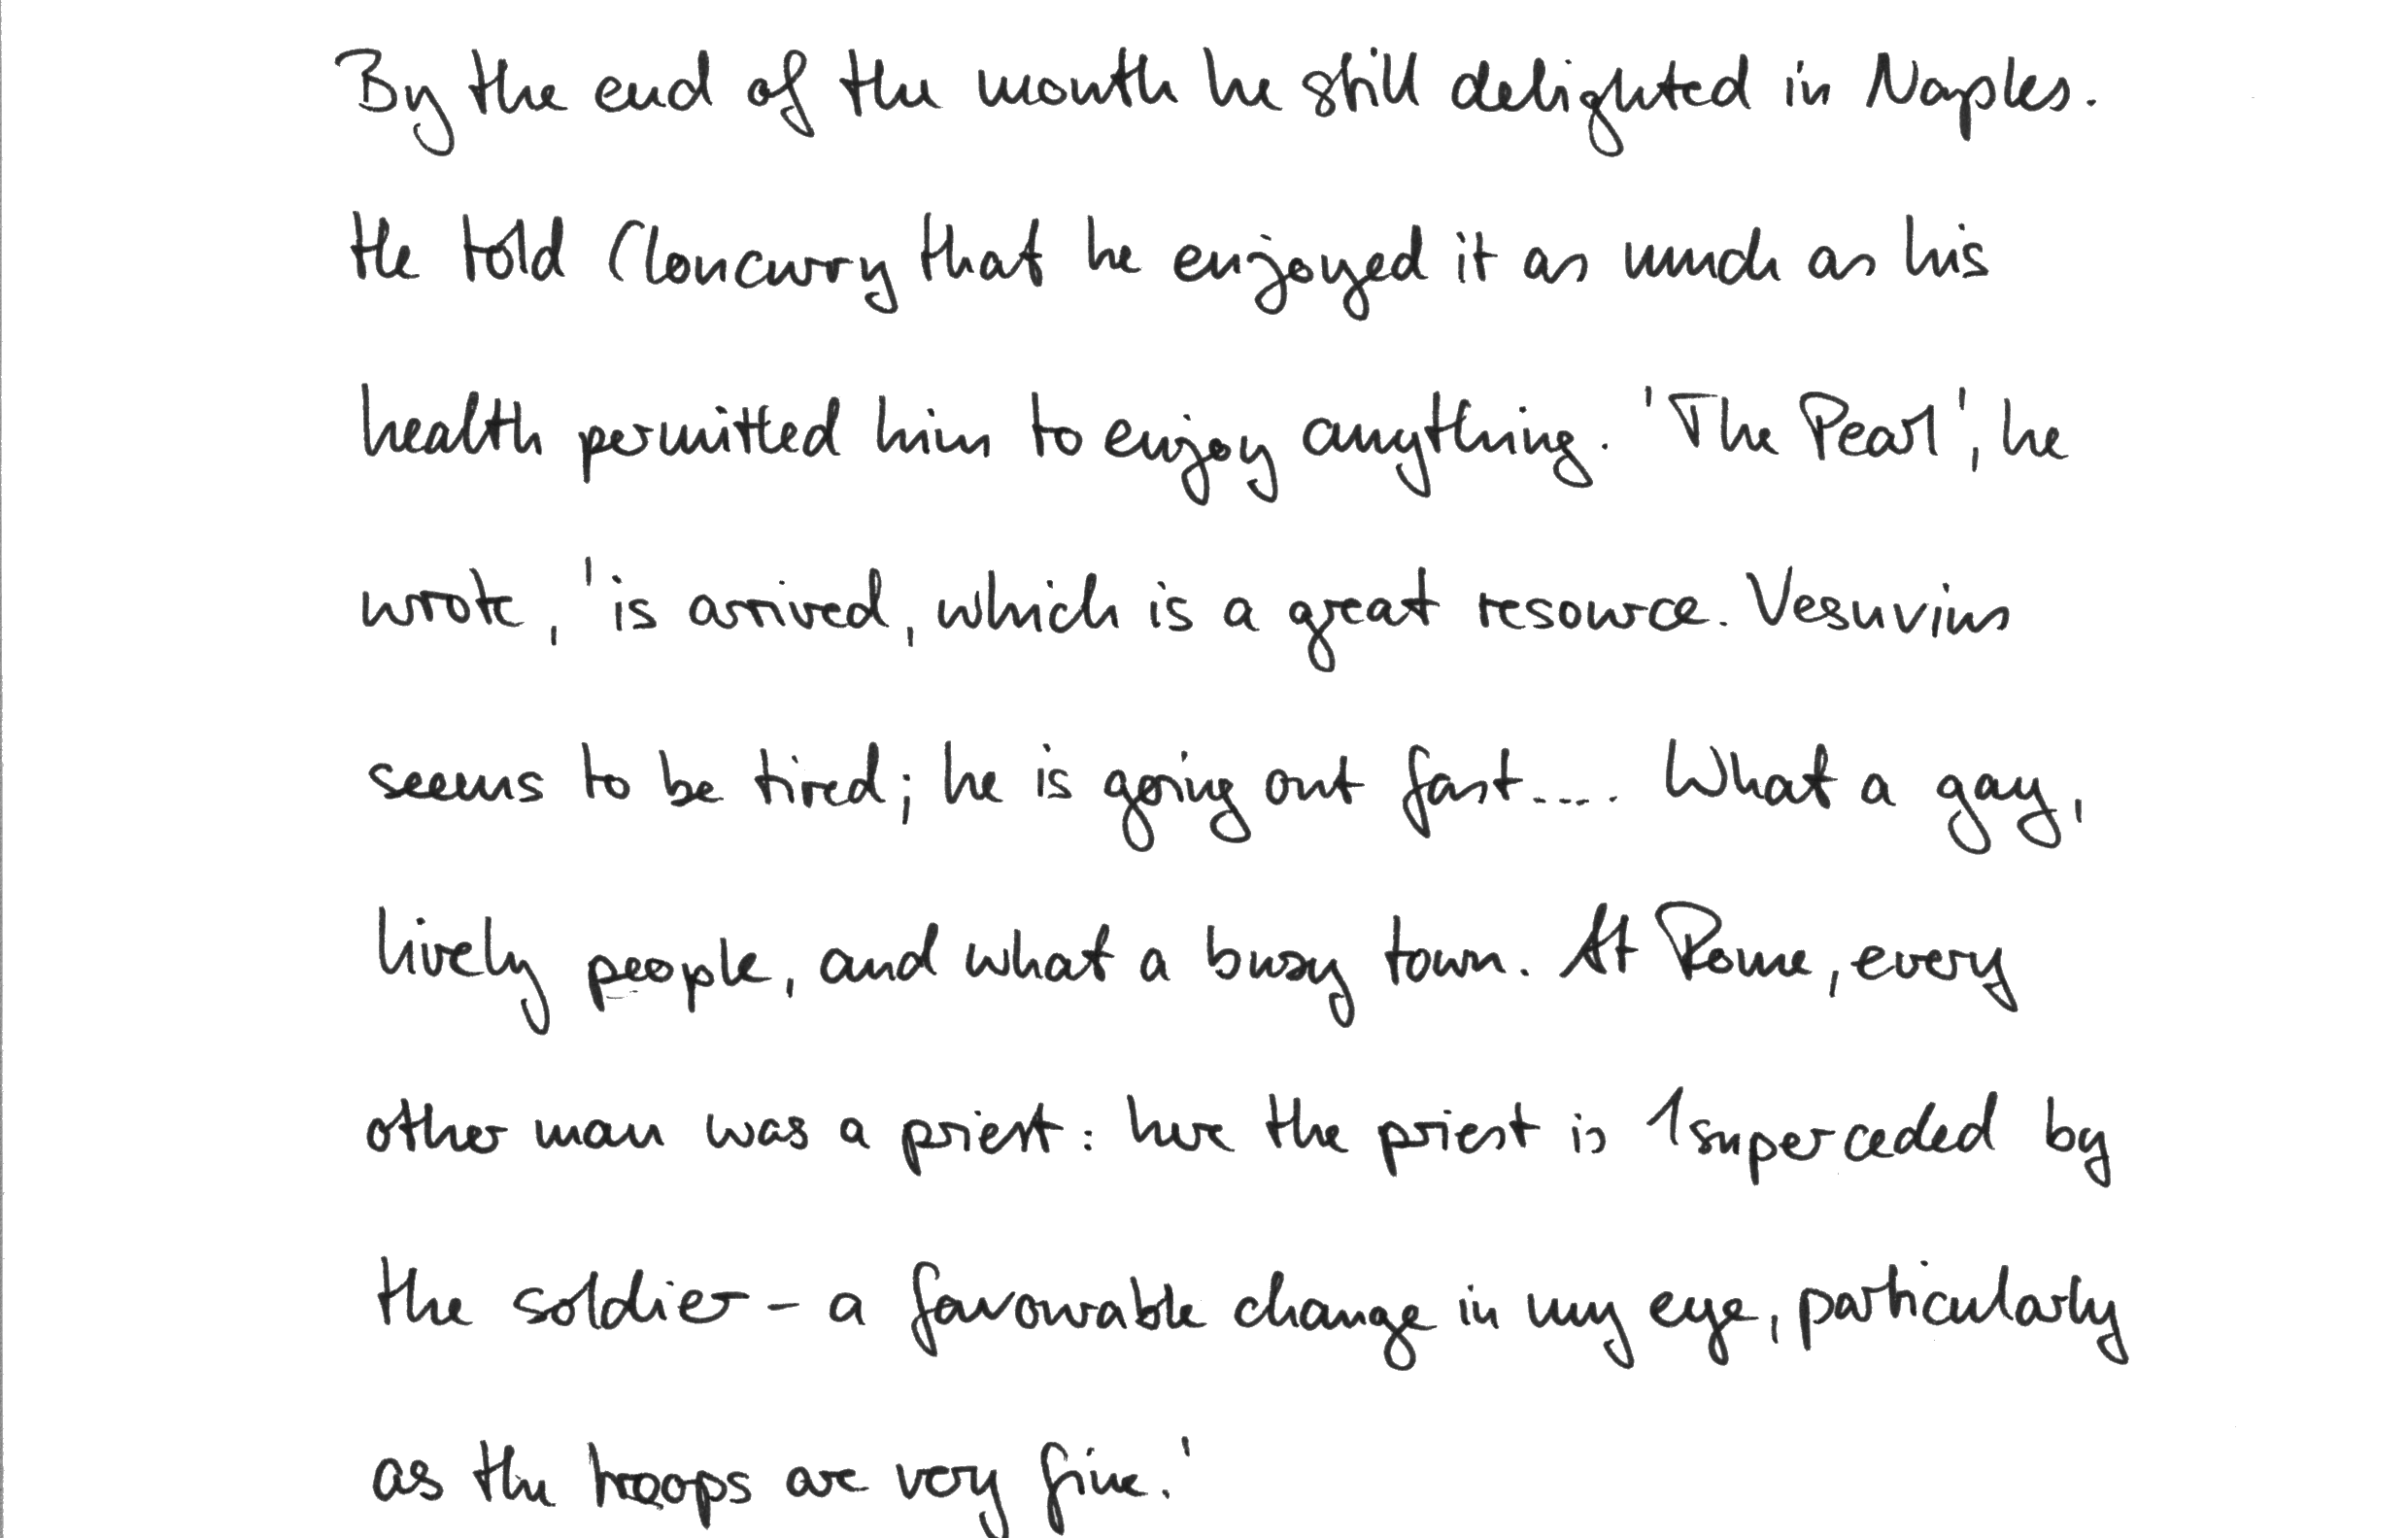 By the end of the month he still delighted in Naples.
He told Cloncurry that he enjoyed it as much as his
health permitted him to enjoy anything. 'The Pearl', he
wrote, 'is arrived, which is a great resource. Vesuvius
seems to be tired; he is going out fast.... What a gay,
lively people, and what a busy town. At Rome, every
other man was a priest: here the priest is 1superceded by
the soldier - a favourable change in my eye, particularly
as the troops are very fine.'